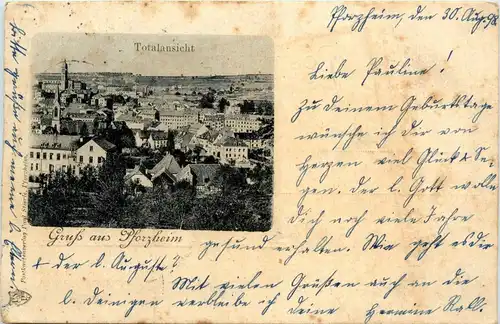 Pforzheim, den 30 Aug. 98
Totalansicht
Liebe Pauline!
Zu deinem Geburtstage
wünsche ich dir von
Herzen viel Glück & Se-
gen. der l. Gott wolle
dich noch viele Jahre
Gruß aus Pforzheim
gesund erhalten. Wie geht es dir
& der l. Auguste?
Mit vielen Grüßen auch an die
l. Deinigen verbleibe ich deine Hermine Rall.
bitte grüße auch